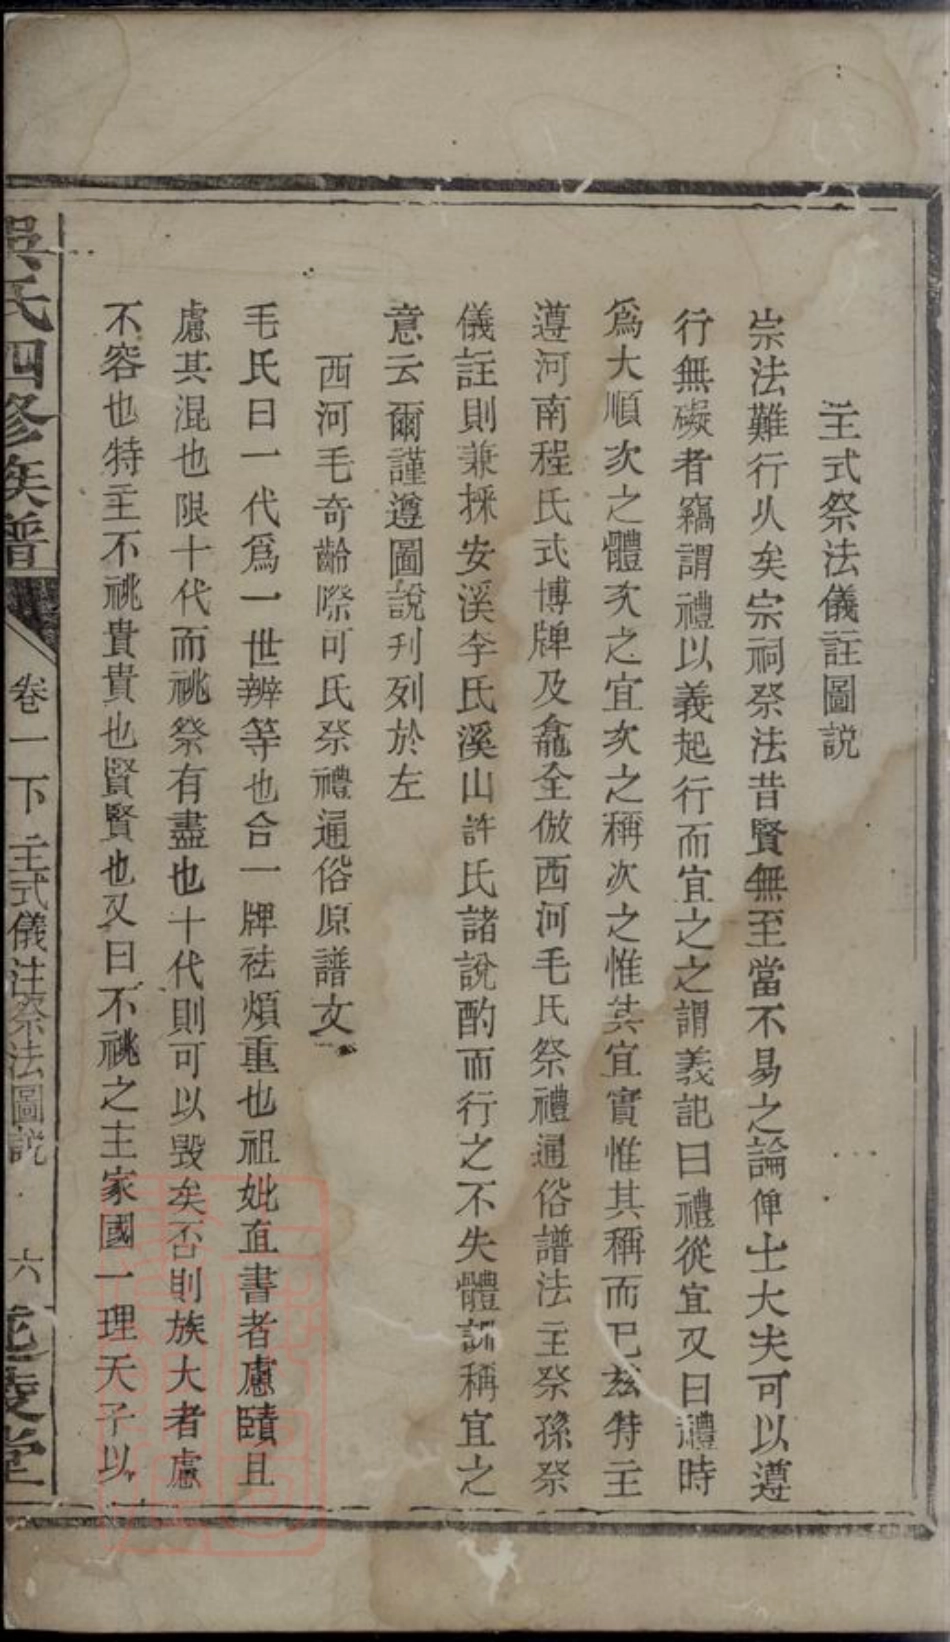 主式祭法儀註圖説
宗法難行久矣宗祠祭法昔賢無至當不易之論俾士大夫可以遵
行無礙者竊謂禮以義起行而宜之之謂義記曰禮從宜又曰禮時
爲大順次之體次之宜次之稱次之惟其宜實惟其稱而已兹特主
遵河南程氏式博牌及龕全倣西河毛氏祭禮通俗譜法主祭孫祭
儀註則兼採安溪李氏溪山許氏諸說酌而行之不失體訓稱宜之
意云爾謹遵圖說刋列於左
西河毛奇齡際可氏祭禮通俗原譜文
毛氏曰一代爲一世辨等也合一牌祛煩重也祖妣直書者慮賾且
慮其混也限十代而祧祭有盡也十代則可以毀矣否則族大者慮
不容也特主不祧貴貴也賢賢也又曰不祧之主家國一理天子以
吳氏四修族譜
卷一下
主式儀注祭法圖説
六
延陵堂